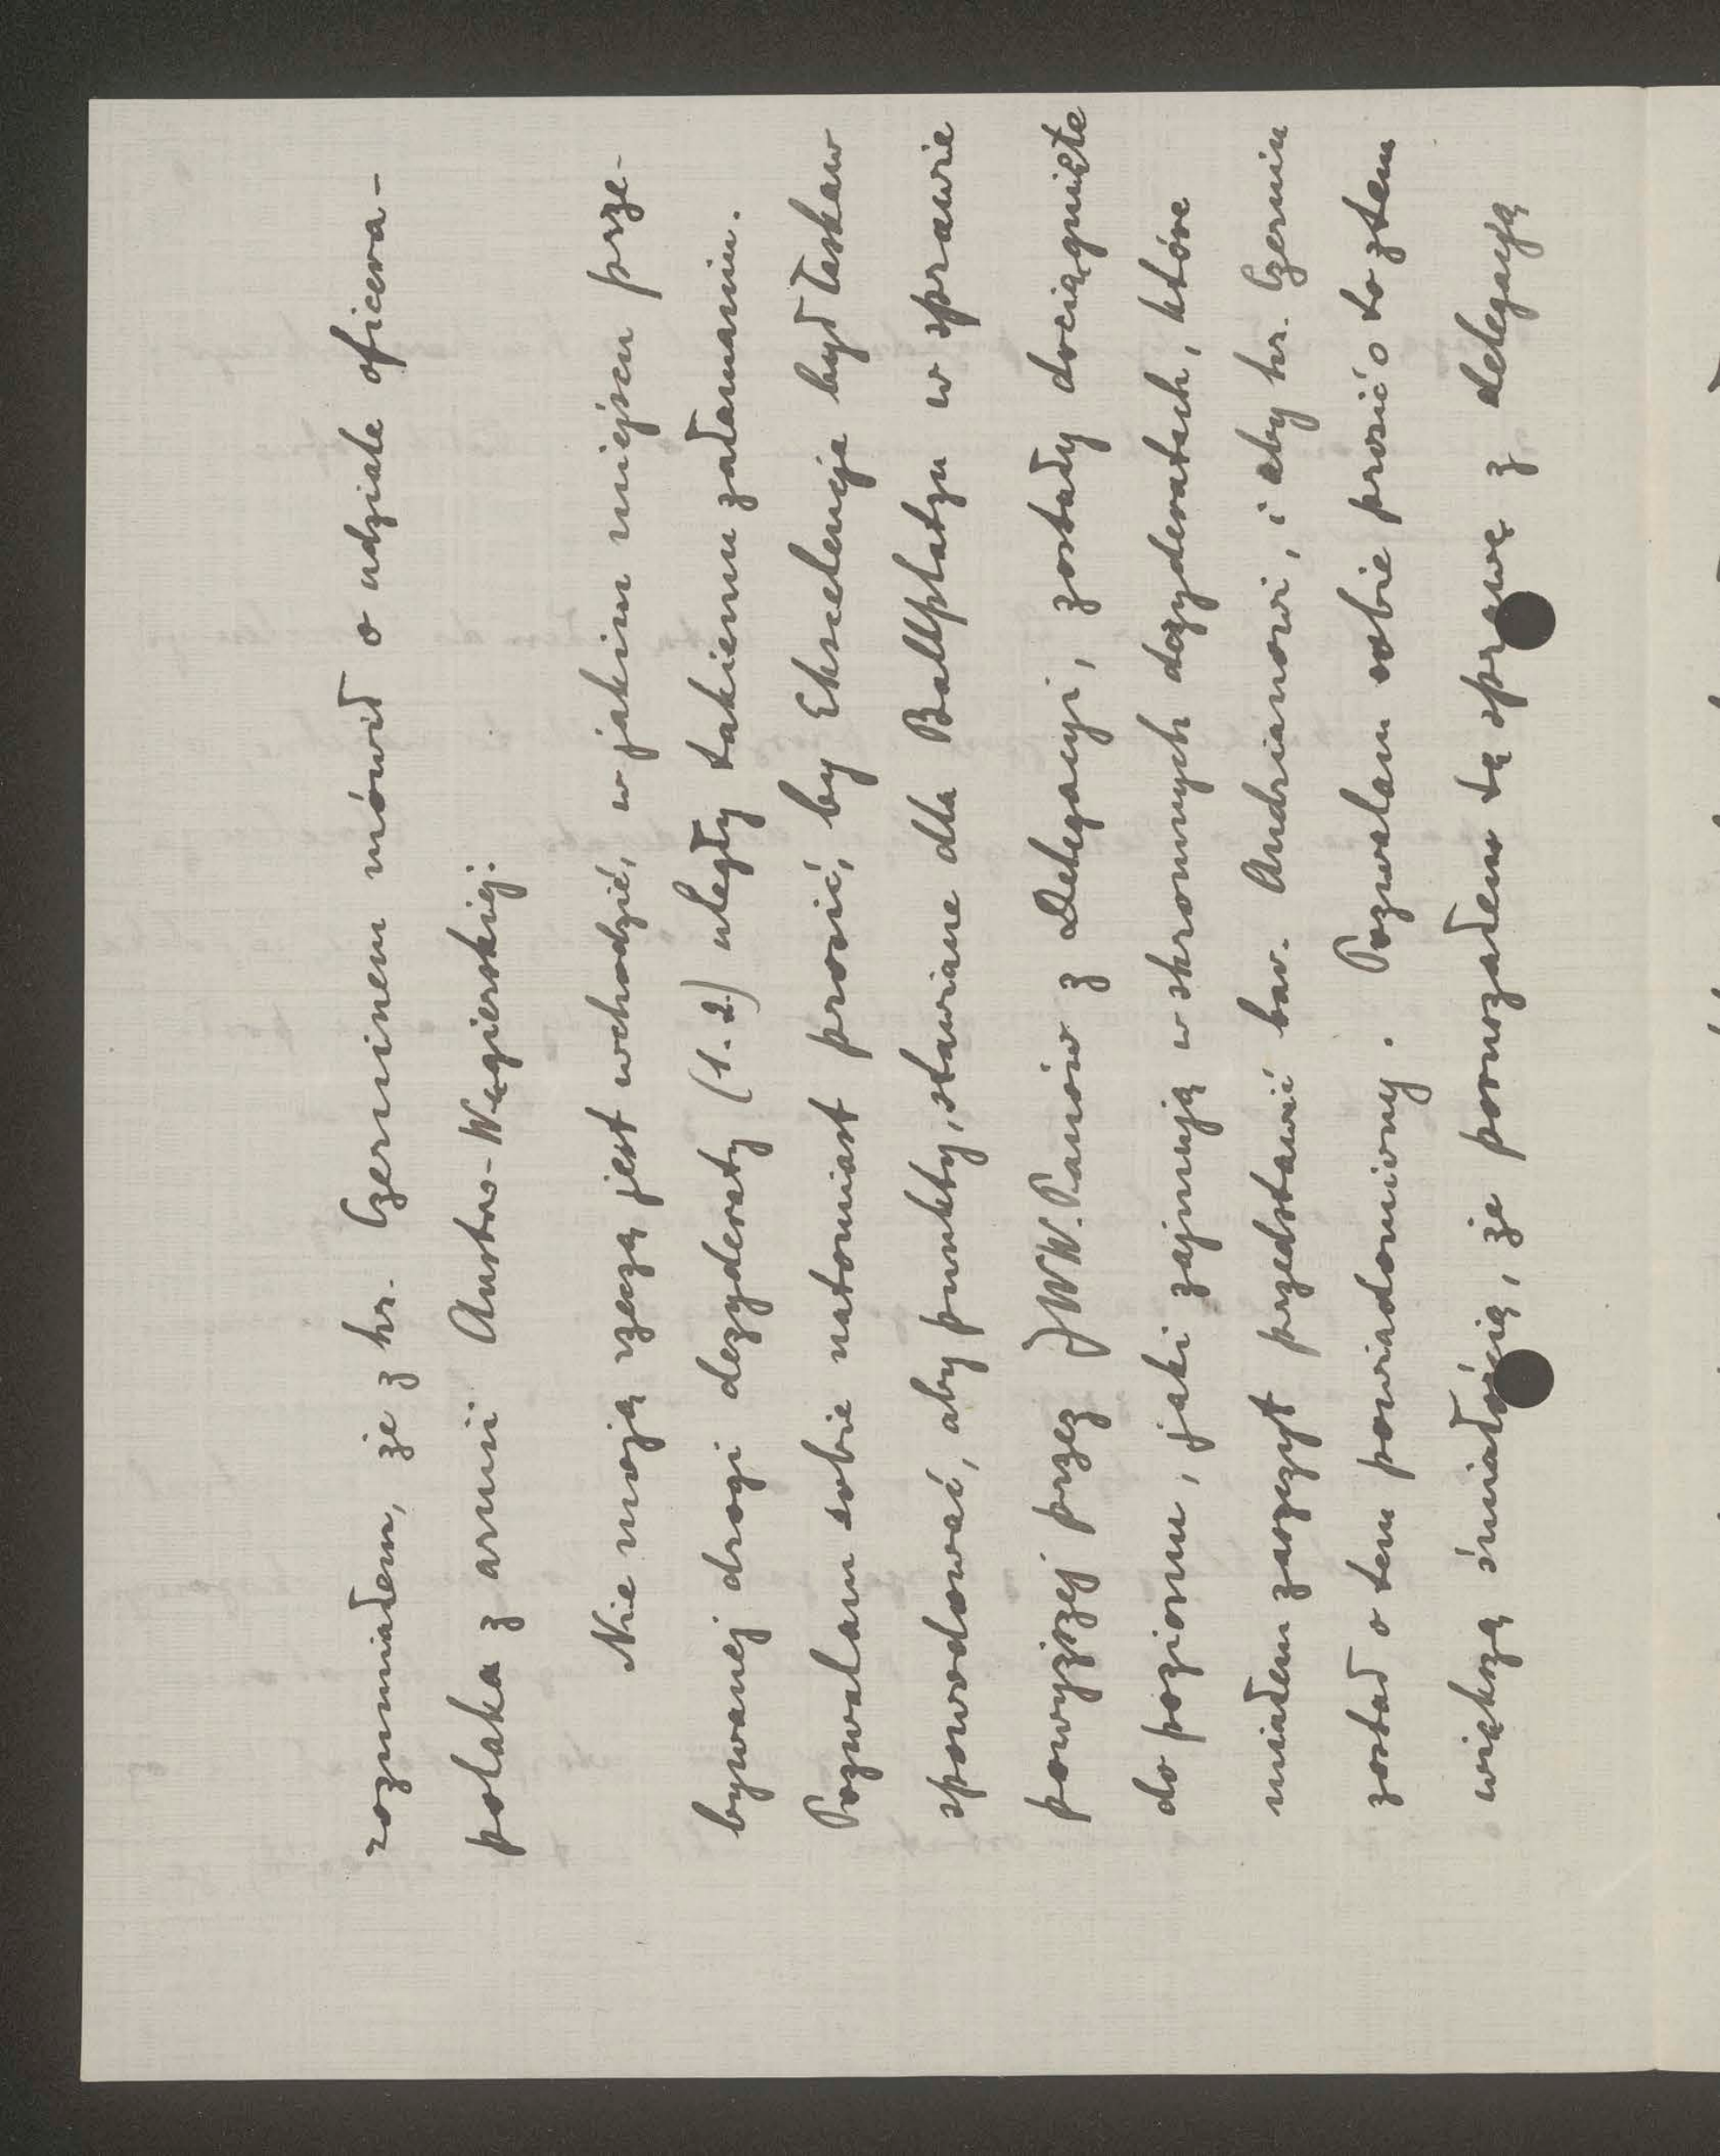 rozumiałem, że z hr. Czerninem mówił o udziale oficera-
polaka z armii Austro-Węgierskiej.
Nie moją rzeczą jest wchodzić, w jakiem miejscu prze-
bywanej drogi dezyderaty (1.2) uległy takiemu załamaniu.
Pozwalam sobie natomiast prosić, by Ekscelencja był łaskaw
spowodować, aby punkty, stawiane dla Ballplatzu w sprawie
powyższej przez JWW. Panów z Delegacyi, zostały dociągnięte
do poziomu, jaki zajmują w skromnych dezyderatach, które
miałem zaszczyt przedstawić bar. Andrianowi, i aby hr. Czernin
został o tem powiadomiony. Pozwalam sobie prosić o to z tem
większą śmiałością, że poruszałem tę sprawę z delegacyą